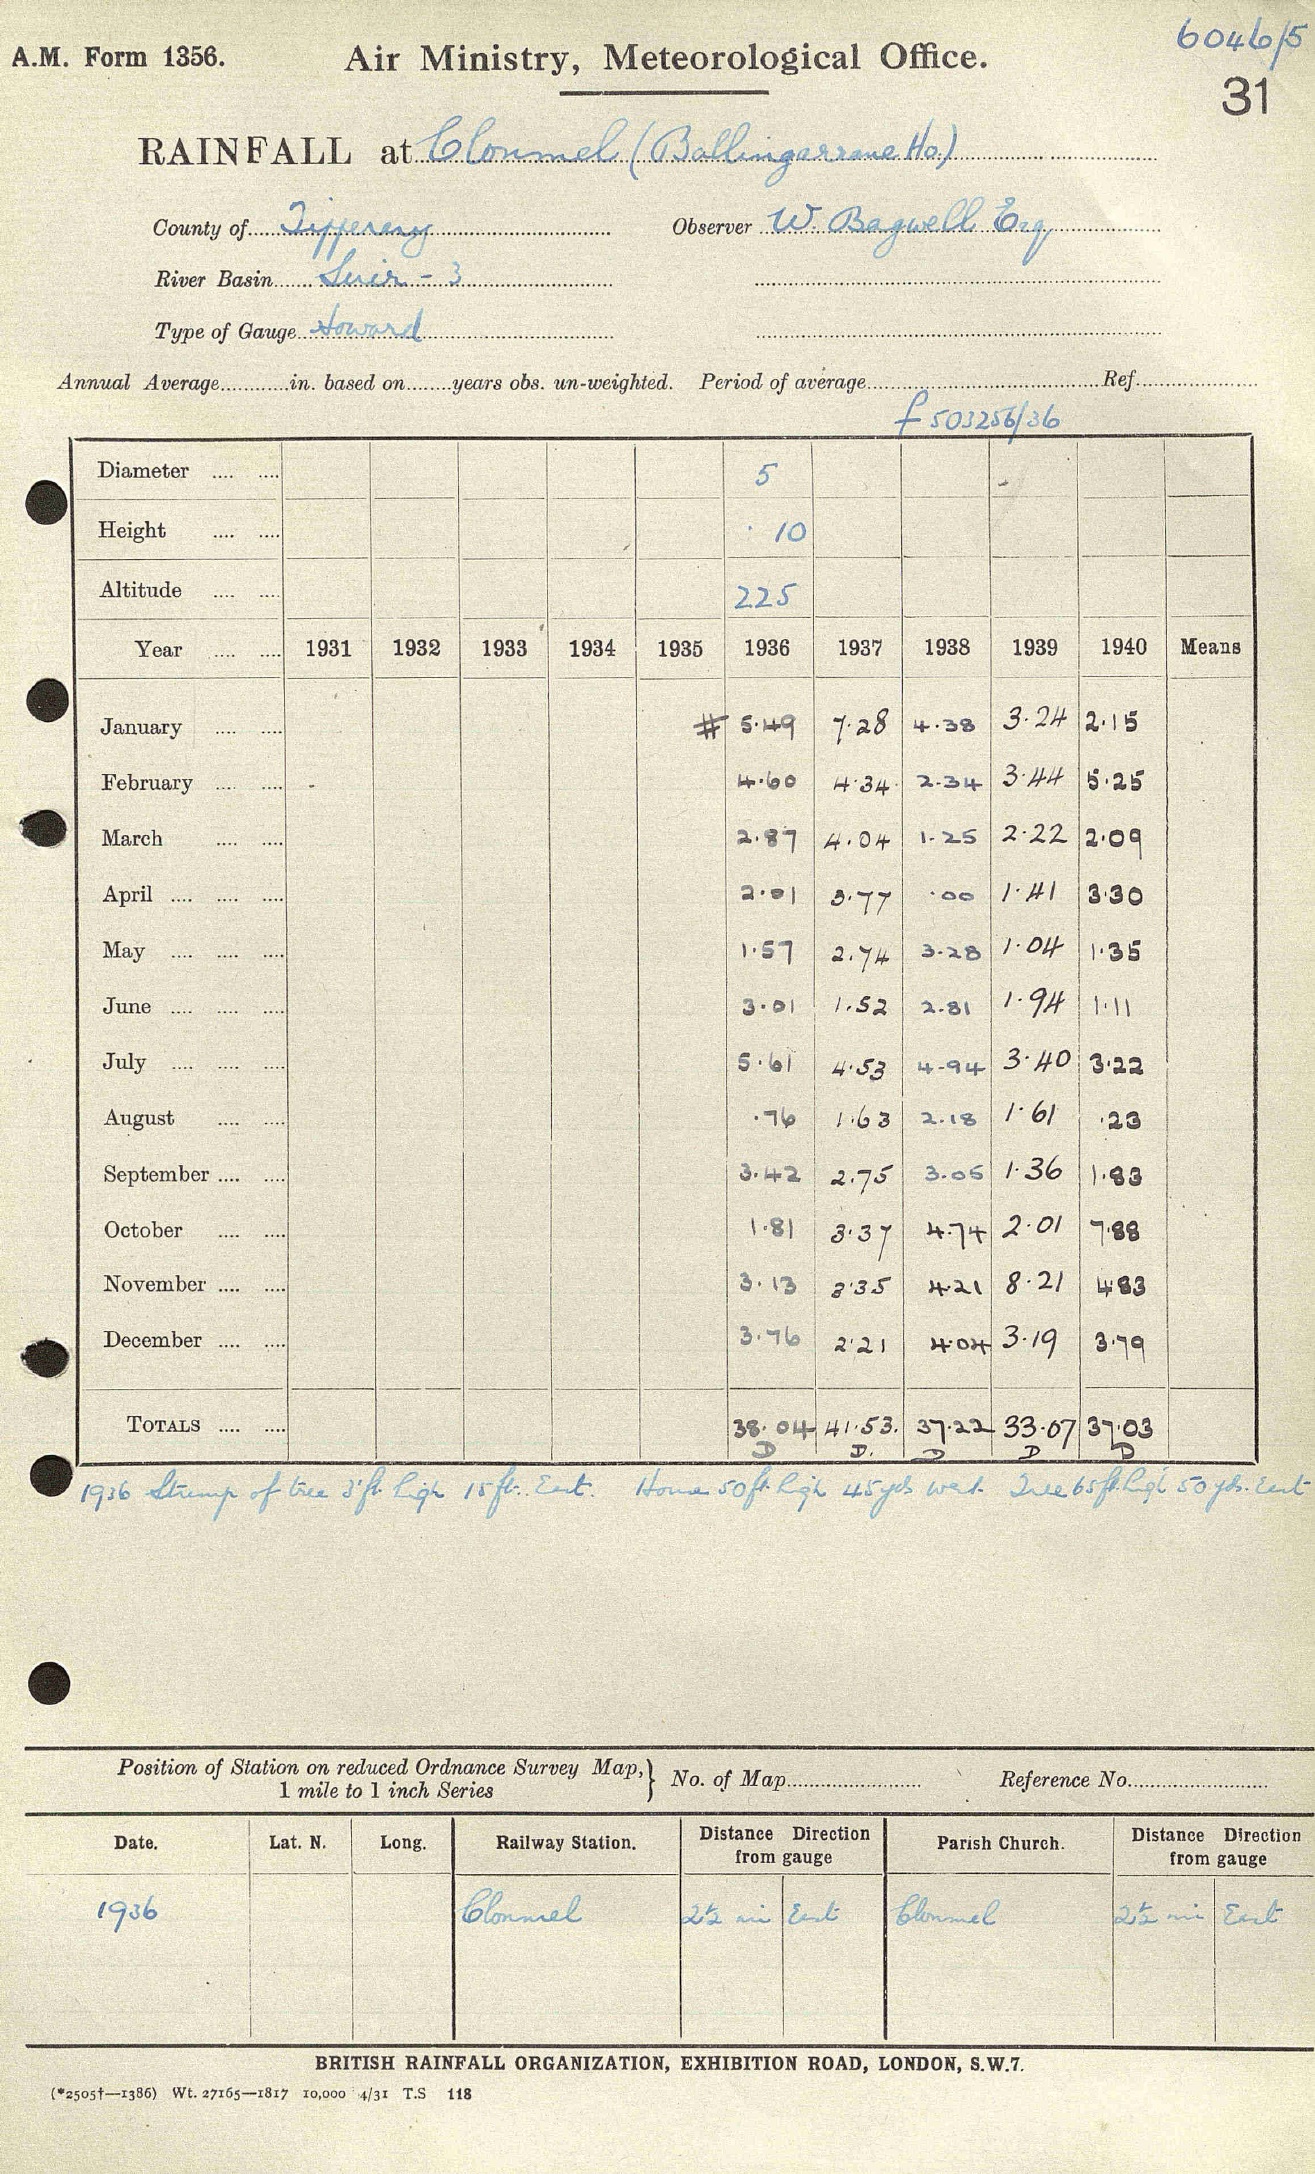 6046/5
A.M. Form 1356. Air Ministry, Meteorological Office.
31
RAINFALL at Clonmel (Ballingarrane Ho.)
County of Tipperary Observer W. Bagwell Esq
River Basin Suir - 3
Type of Gauge Howard
Annual Average in. based on years obs. un-weighted. Period of average Ref.
f 503256/36
Diameter 5
Height 10
Altitude 225
Year 1931 1932 1933 1934 1935 1936 1937 1938 1939 1940 Means
January # 5.49 7.28 4.38 3.24 2.15
February 4.60 4.34 2.34 3.44 5.25
March 2.87 4.04 1.25 2.22 2.09
April 2.01 3.77 .00 1.41 3.30
May 1.57 2.74 3.28 1.04 1.35
June 3.01 1.52 2.81 1.94 1.11
July 5.61 4.53 4.94 3.40 3.22
August .76 1.63 2.18 1.61 .23
September 3.42 2.75 3.05 1.36 1.83
October 1.81 3.37 4.74 2.01 7.88
November 3.13 3.35 4.21 8.21 4.83
December 3.76 2.21 4.04 3.19 3.79
TOTALS 38.04 41.53. 37.22 33.07 37.03
D D. D D D
1936 Stump of tree 3 ft high 15 ft. East. House 50 ft. high 45 yds west. Tree 65 ft. high 50 yds. East
Position of Station on reduced Ordnance Survey Map, } No. of Map Reference No.
1 mile to 1 inch Series
Date. Lat. N. Long. Railway Station. Distance Direction Parish Church. Distance Direction
from gauge from gauge
1936 Clonmel 2½ mi East Clonmel 2½ mi East
BRITISH RAINFALL ORGANIZATION, EXHIBITION ROAD, LONDON, S.W.7.
(*2505†—1386) Wt. 27165—1817 10,000 4/31 T.S 118